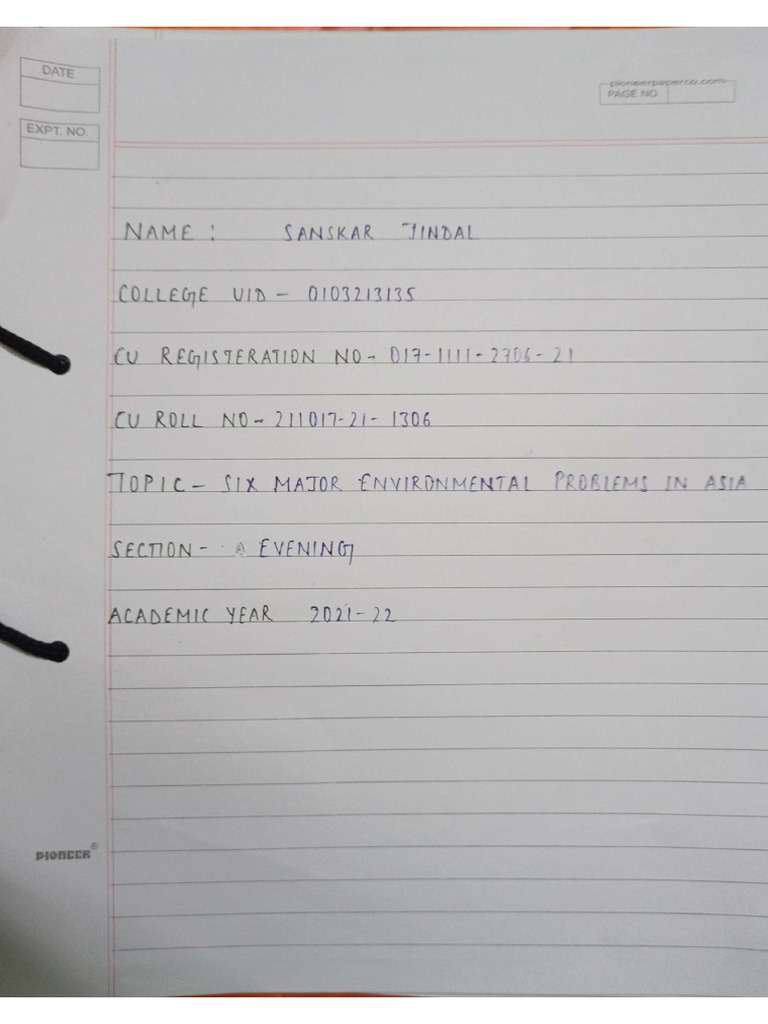 DATE
pioneerpaperco.com
PAGE NO.
EXPT. NO.
NAME : SANSKAR JINDAL
COLLEGE UID - 0103213135
CU REGISTERATION NO - 017-1111-2706-21
CU ROLL NO - 211017-21-1306
TOPIC - SIX MAJOR ENVIRONMENTAL PROBLEMS IN ASIA
SECTION - EVENING
ACADEMIC YEAR 2021-22
PIONEER®